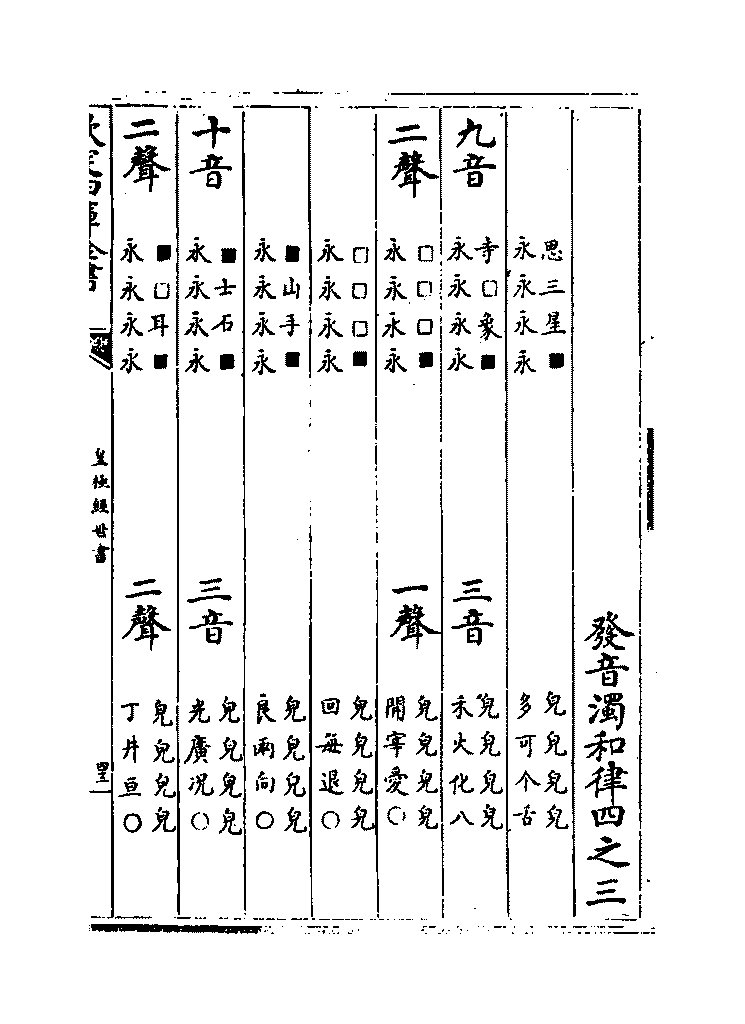 發音濁和律四之三
思三星■
永永永永
兒兒兒兒
多可个舌
九音
寺□象■
永永永永
三音
兒兒兒兒
禾火化八
二聲
□□□■
永永永永
一聲
兒兒兒兒
開宰愛○
□□□■
永永永永
兒兒兒兒
回每退○
■山手■
永永永永
兒兒兒兒
良兩向○
十音
■士石■
永永永永
三音
兒兒兒兒
光廣况○
二聲
■□耳■
永永永永
二聲
兒兒兒兒
丁井亘○
欽定四庫全書
皇極經世書